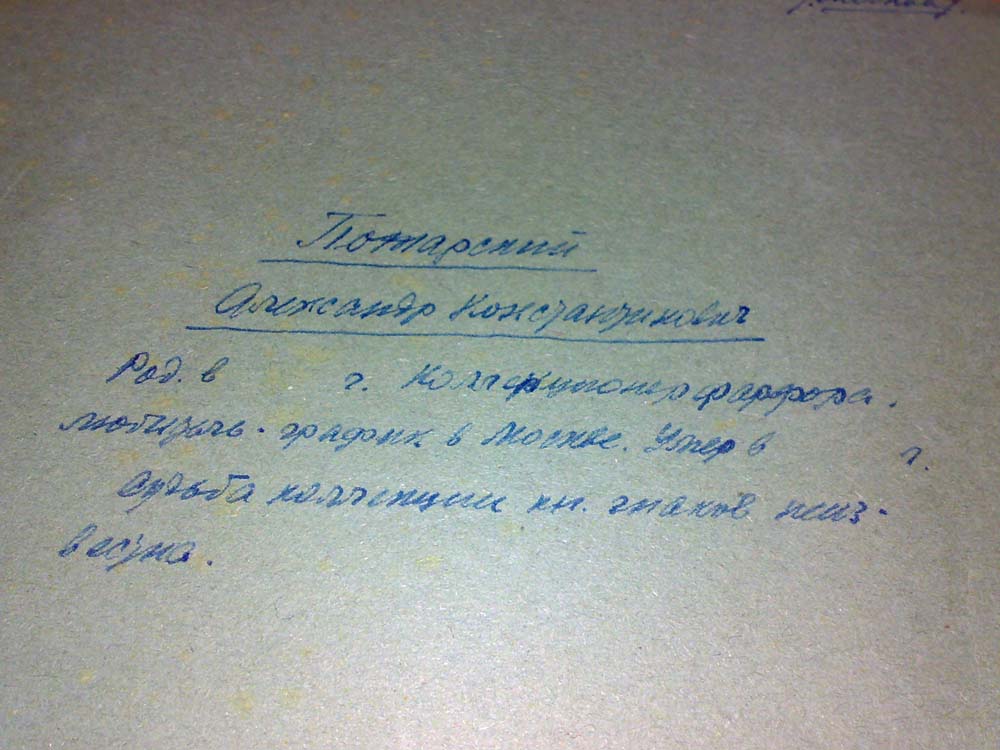 Пожарский
Александр Константинович
Род. в г. Коллекционер фарфора.
любитель-график в Москве. Умер в г.
Судьба коллекции кн. знаков неиз-
вестна.